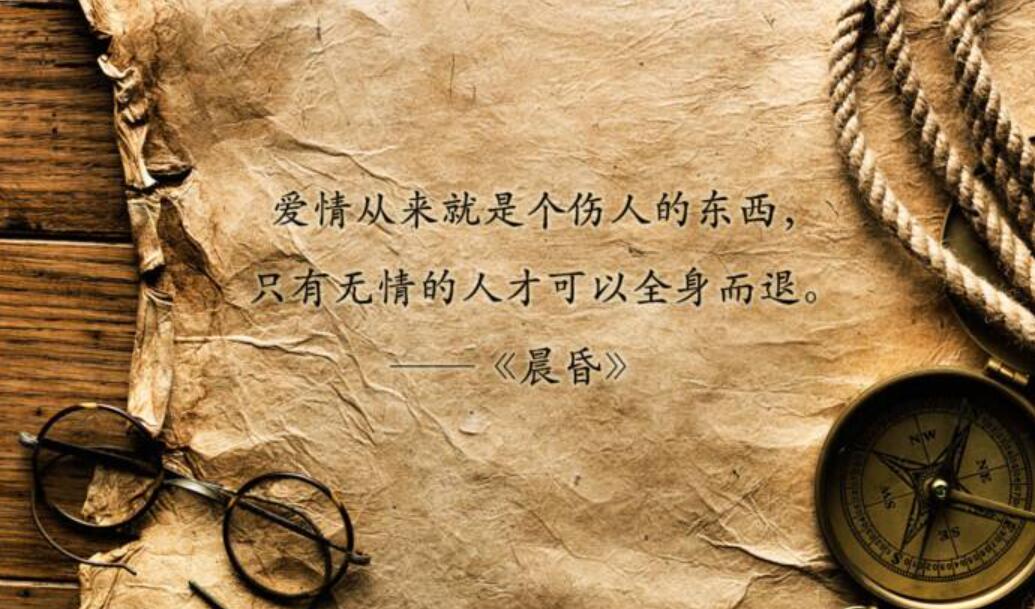 爱情从来就是个伤人的东西，
只有无情的人才可以全身而退。
——《晨昏》
NW
NE
SW
SE
S
E